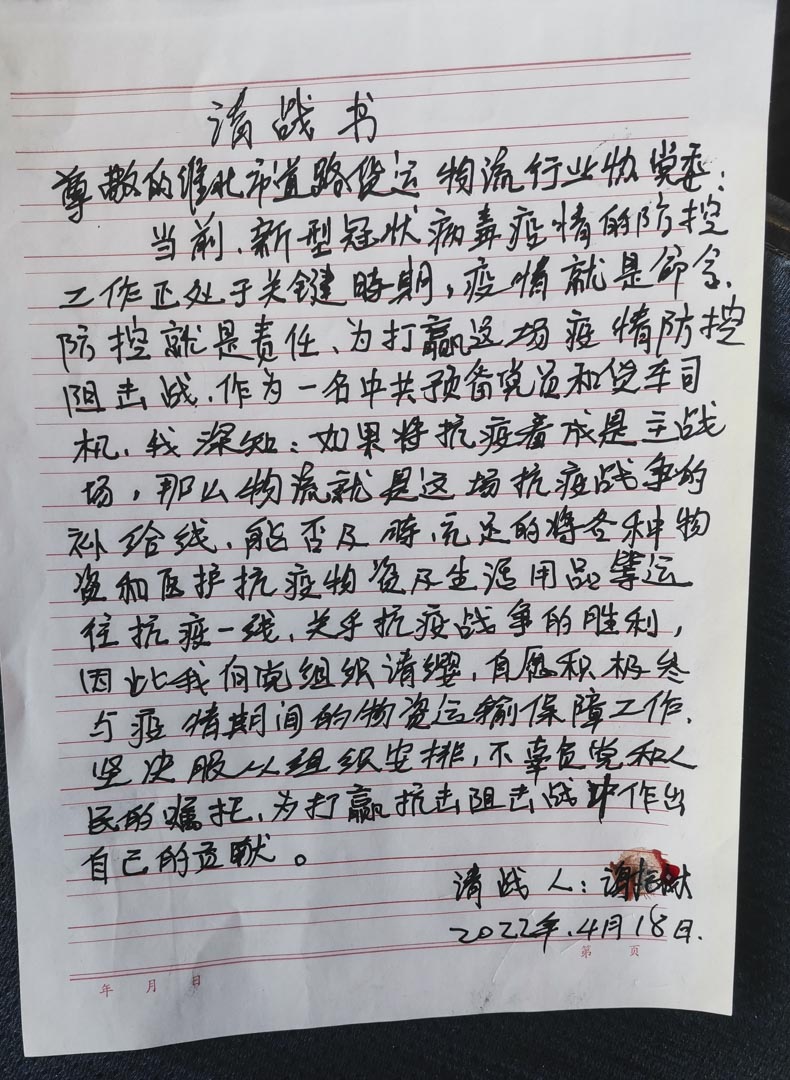 请战书
尊敬的淮北市道路货运物流行业协党委:
当前、新型冠状病毒疫情的防控
工作正处于关键时期,疫情就是命令、
防控就是责任、为打赢这场疫情防控
阻击战、作为一名中共预备党员和货车司
机、我深知:如果将抗疫看成是主战
场,那么物流就是这场抗疫战争的
补给线、能否及时、充足的将各种物
资和医护抗疫物资及生活用品等运
往抗疫一线、关乎抗疫战争的胜利,
因此我向党组织请缨,自愿积极参
与疫情期间的物资运输保障工作、
坚决服从组织安排,不辜负党和人
民的嘱托、为打赢抗击阻击战中作出
自己的贡献。
请战人:谢
2022年.4月18日.
第 页
年 月 日